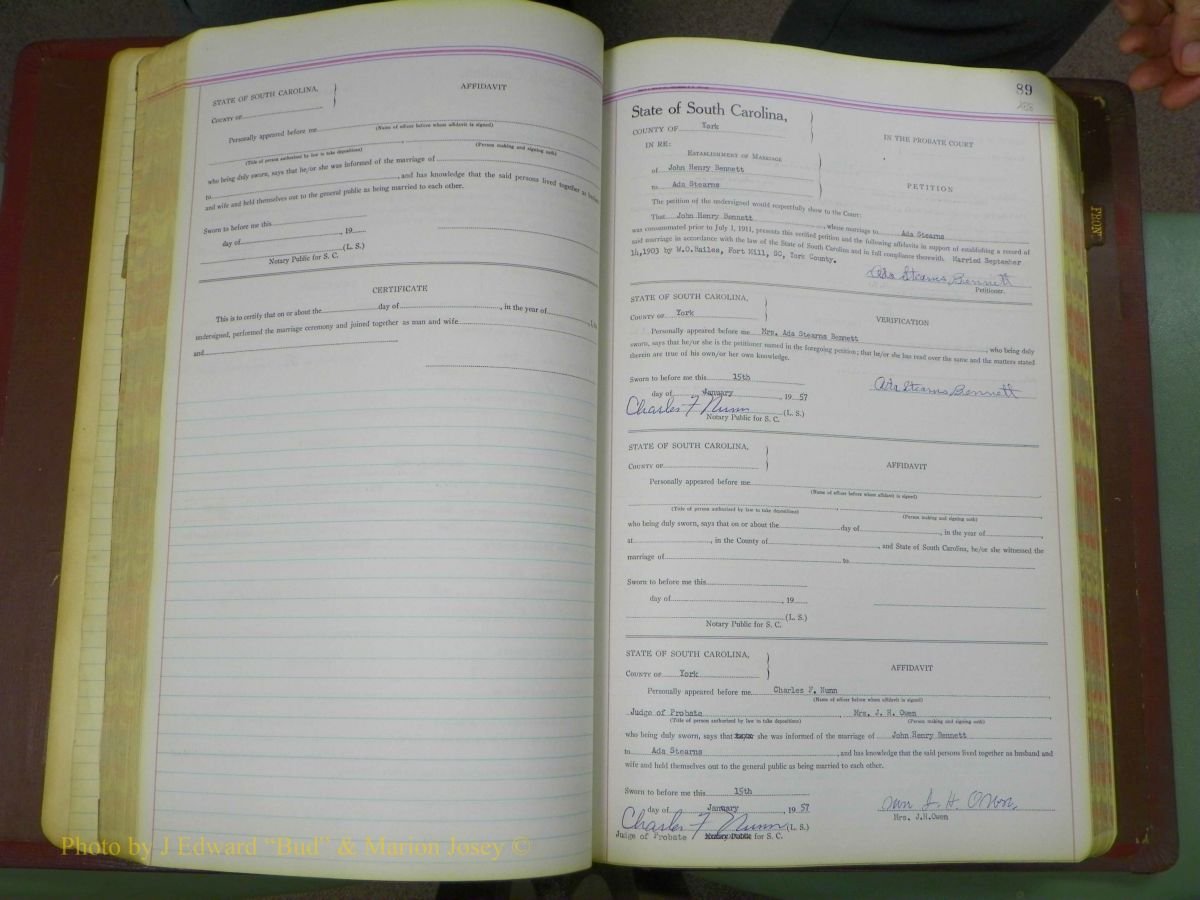 STATE OF SOUTH CAROLINA,
AFFIDAVIT
COUNTY OF
Personally appeared before me
(Name of officer before whom affidavit is signed)
(Title of person authorized by law to take depositions)
(Person making and signing oath)
who being duly sworn, says that he/or she was informed of the marriage of
to, and has knowledge that the said persons lived together as husband
and wife and held themselves out to the general public as being married to each other.
Sworn to before me this
day of, 19
(L. S.)
Notary Public for S. C.
CERTIFICATE
This is to certify that on or about the day of, in the year of, I
undersigned, performed the marriage ceremony and joined together as man and wife
and
89
State of South Carolina,
COUNTY OF York
IN THE PROBATE COURT
IN RE:
ESTABLISHMENT OF MARRIAGE
of John Henry Bennett
to Ada Stearns
PETITION
The petition of the undersigned would respectfully show to the Court:
That John Henry Bennett, whose marriage to Ada Stearns
was consummated prior to July 1, 1911, presents this verified petition and the following affidavits in support of establishing a record of
said marriage in accordance with the law of the State of South Carolina and in full compliance therewith. Married September
14,1903 by W.O.Hailes, Fort Mill, SC, York County.
Ada Stearns Bennett
Petitioner.
STATE OF SOUTH CAROLINA,
COUNTY OF York
VERIFICATION
Personally appeared before me Mrs. Ada Stearns Bennett, who being duly
sworn, says that he/or she is the petitioner named in the foregoing petition; that he/or she has read over the same and the matters stated
therein are true of his own/or her own knowledge.
Sworn to before me this 15th
day of January, 19 57
Ada Stearns Bennett
Charles F Nunn (L. S.)
Notary Public for S. C.
STATE OF SOUTH CAROLINA,
COUNTY OF
AFFIDAVIT
Personally appeared before me
(Name of officer before whom affidavit is signed)
(Title of person authorized by law to take depositions)
(Person making and signing oath)
who being duly sworn, says that on or about the day of, in the year of
at, in the County of, and State of South Carolina, he/or she witnessed the
marriage of to
Sworn to before me this
day of, 19
(L. S.)
Notary Public for S. C.
STATE OF SOUTH CAROLINA,
COUNTY OF York
AFFIDAVIT
Personally appeared before me Charles F. Nunn
(Name of officer before whom affidavit is signed)
Judge of Probate, Mrs. J. H. Owen
(Title of person authorized by law to take depositions)
(Person making and signing oath)
who being duly sworn, says that she was informed of the marriage of John Henry Bennett
to Ada Stearns, and has knowledge that the said persons lived together as husband and
wife and held themselves out to the general public as being married to each other.
Sworn to before me this 15th
day of January 19 57
Mrs J. H. Owen
Mrs. J.H.Owen
Charles F Nunn (L. S.)
Judge of Probate Notary Public for S. C.
Photo by J Edward "Bud" & Marion Josey ©